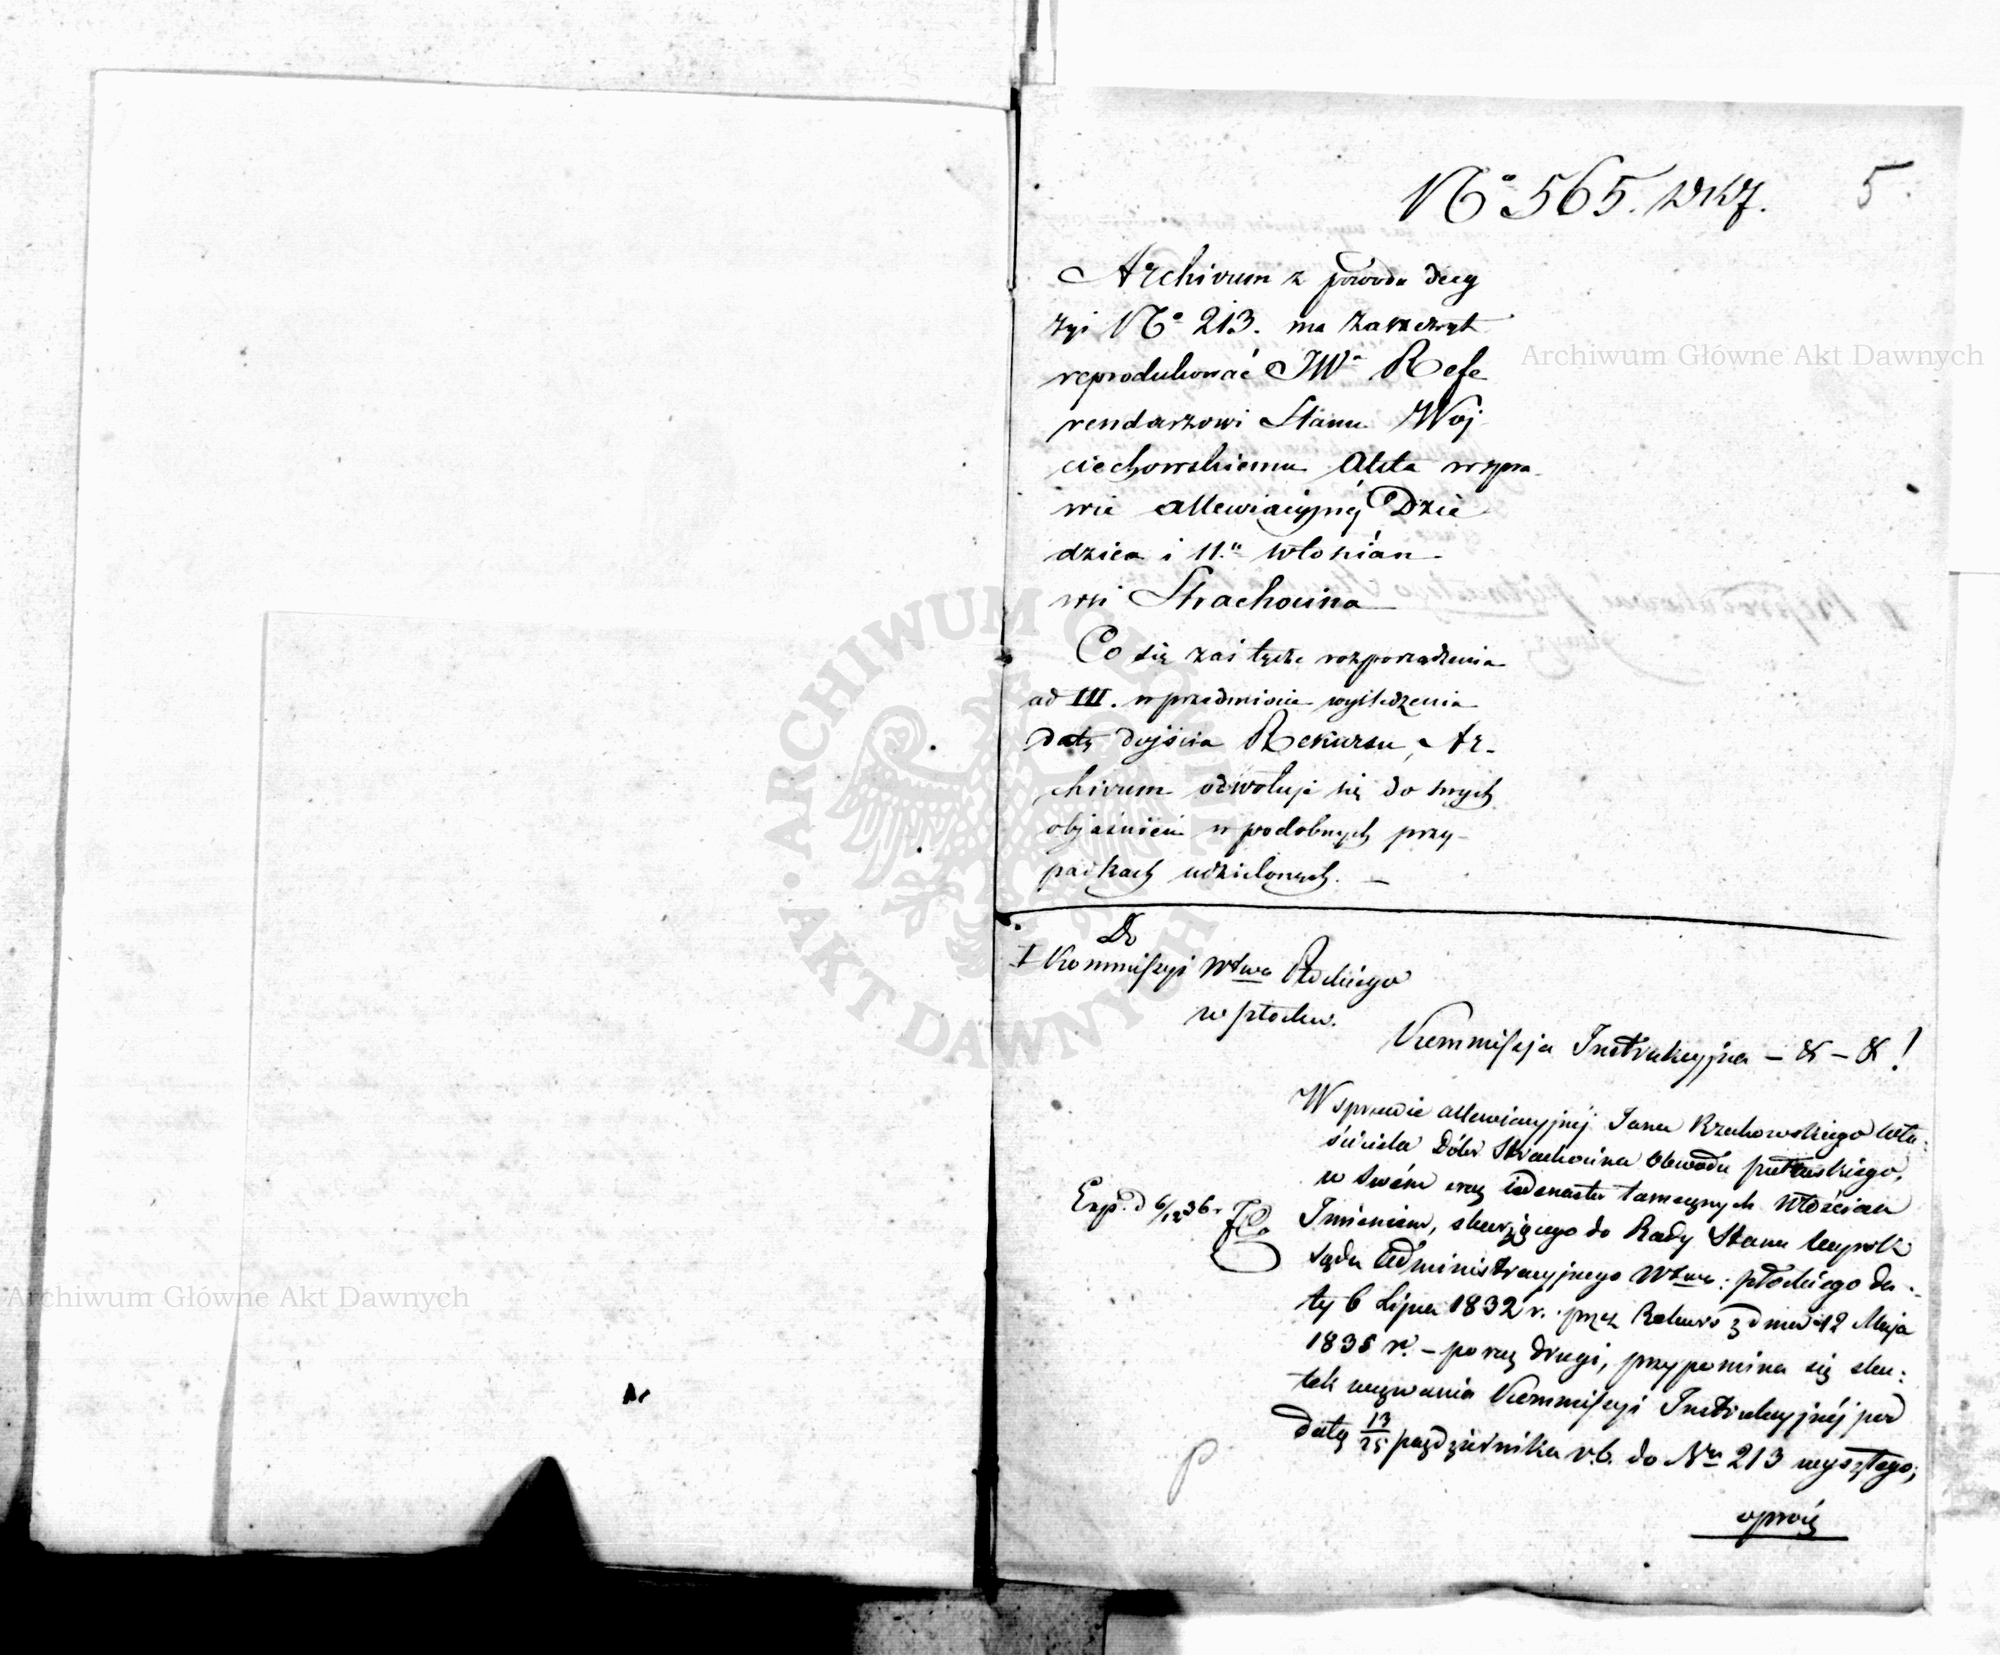 5.
Nº 565.
Archivum z powodu decy
zyi Nº 213. ma zaszczyt
reprodukować JWº Refe
rendarzowi Stanu Woj
ciechowskiemu Akta w spra
wie allewiacyjnéj Dzie
dzica i 11.tu włościan
wsi Strachocina
Co się zaś tycze rozporządzenia
ad III. w przedmiocie wyśledzenia
daty dojścia Rekursu, Ar-
chivum odwołuje się do swych
objaśnień w podobnych przy-
padkach udzielonych. —
Do
I Kommissyi Wdztwa Płockiego
w Płocku.
Kommissyja Instrukcyjna — & — & !
W sprawie allewiacyjnéj Jana Rzechowskiego wła:
ściciela Dóbr Strachocina Obwodu pułtuskiego,
w swém oraz iedenastu tamecznych włościan
Imieniem, skarżącego do Rady Stanu wyrok
Sądu Administracyjnego Wdztwa: płockiego da-
ty 6 Lipca 1832 r. przez Rekurs z dnia 12 Maja
1835 r. — po raz drugi, przypomina się sku:
tek wezwania Kommissyi Instrukcyjnéj pod
datą 13/25 października r.b. do Nru 213 wyszłego;
oprócz
Exp. d 6/12 36 r.
Archiwum Główne Akt Dawnych
Archiwum Główne Akt Dawnych
ARCHIWUM GŁÓWNE AKT DAWNYCH